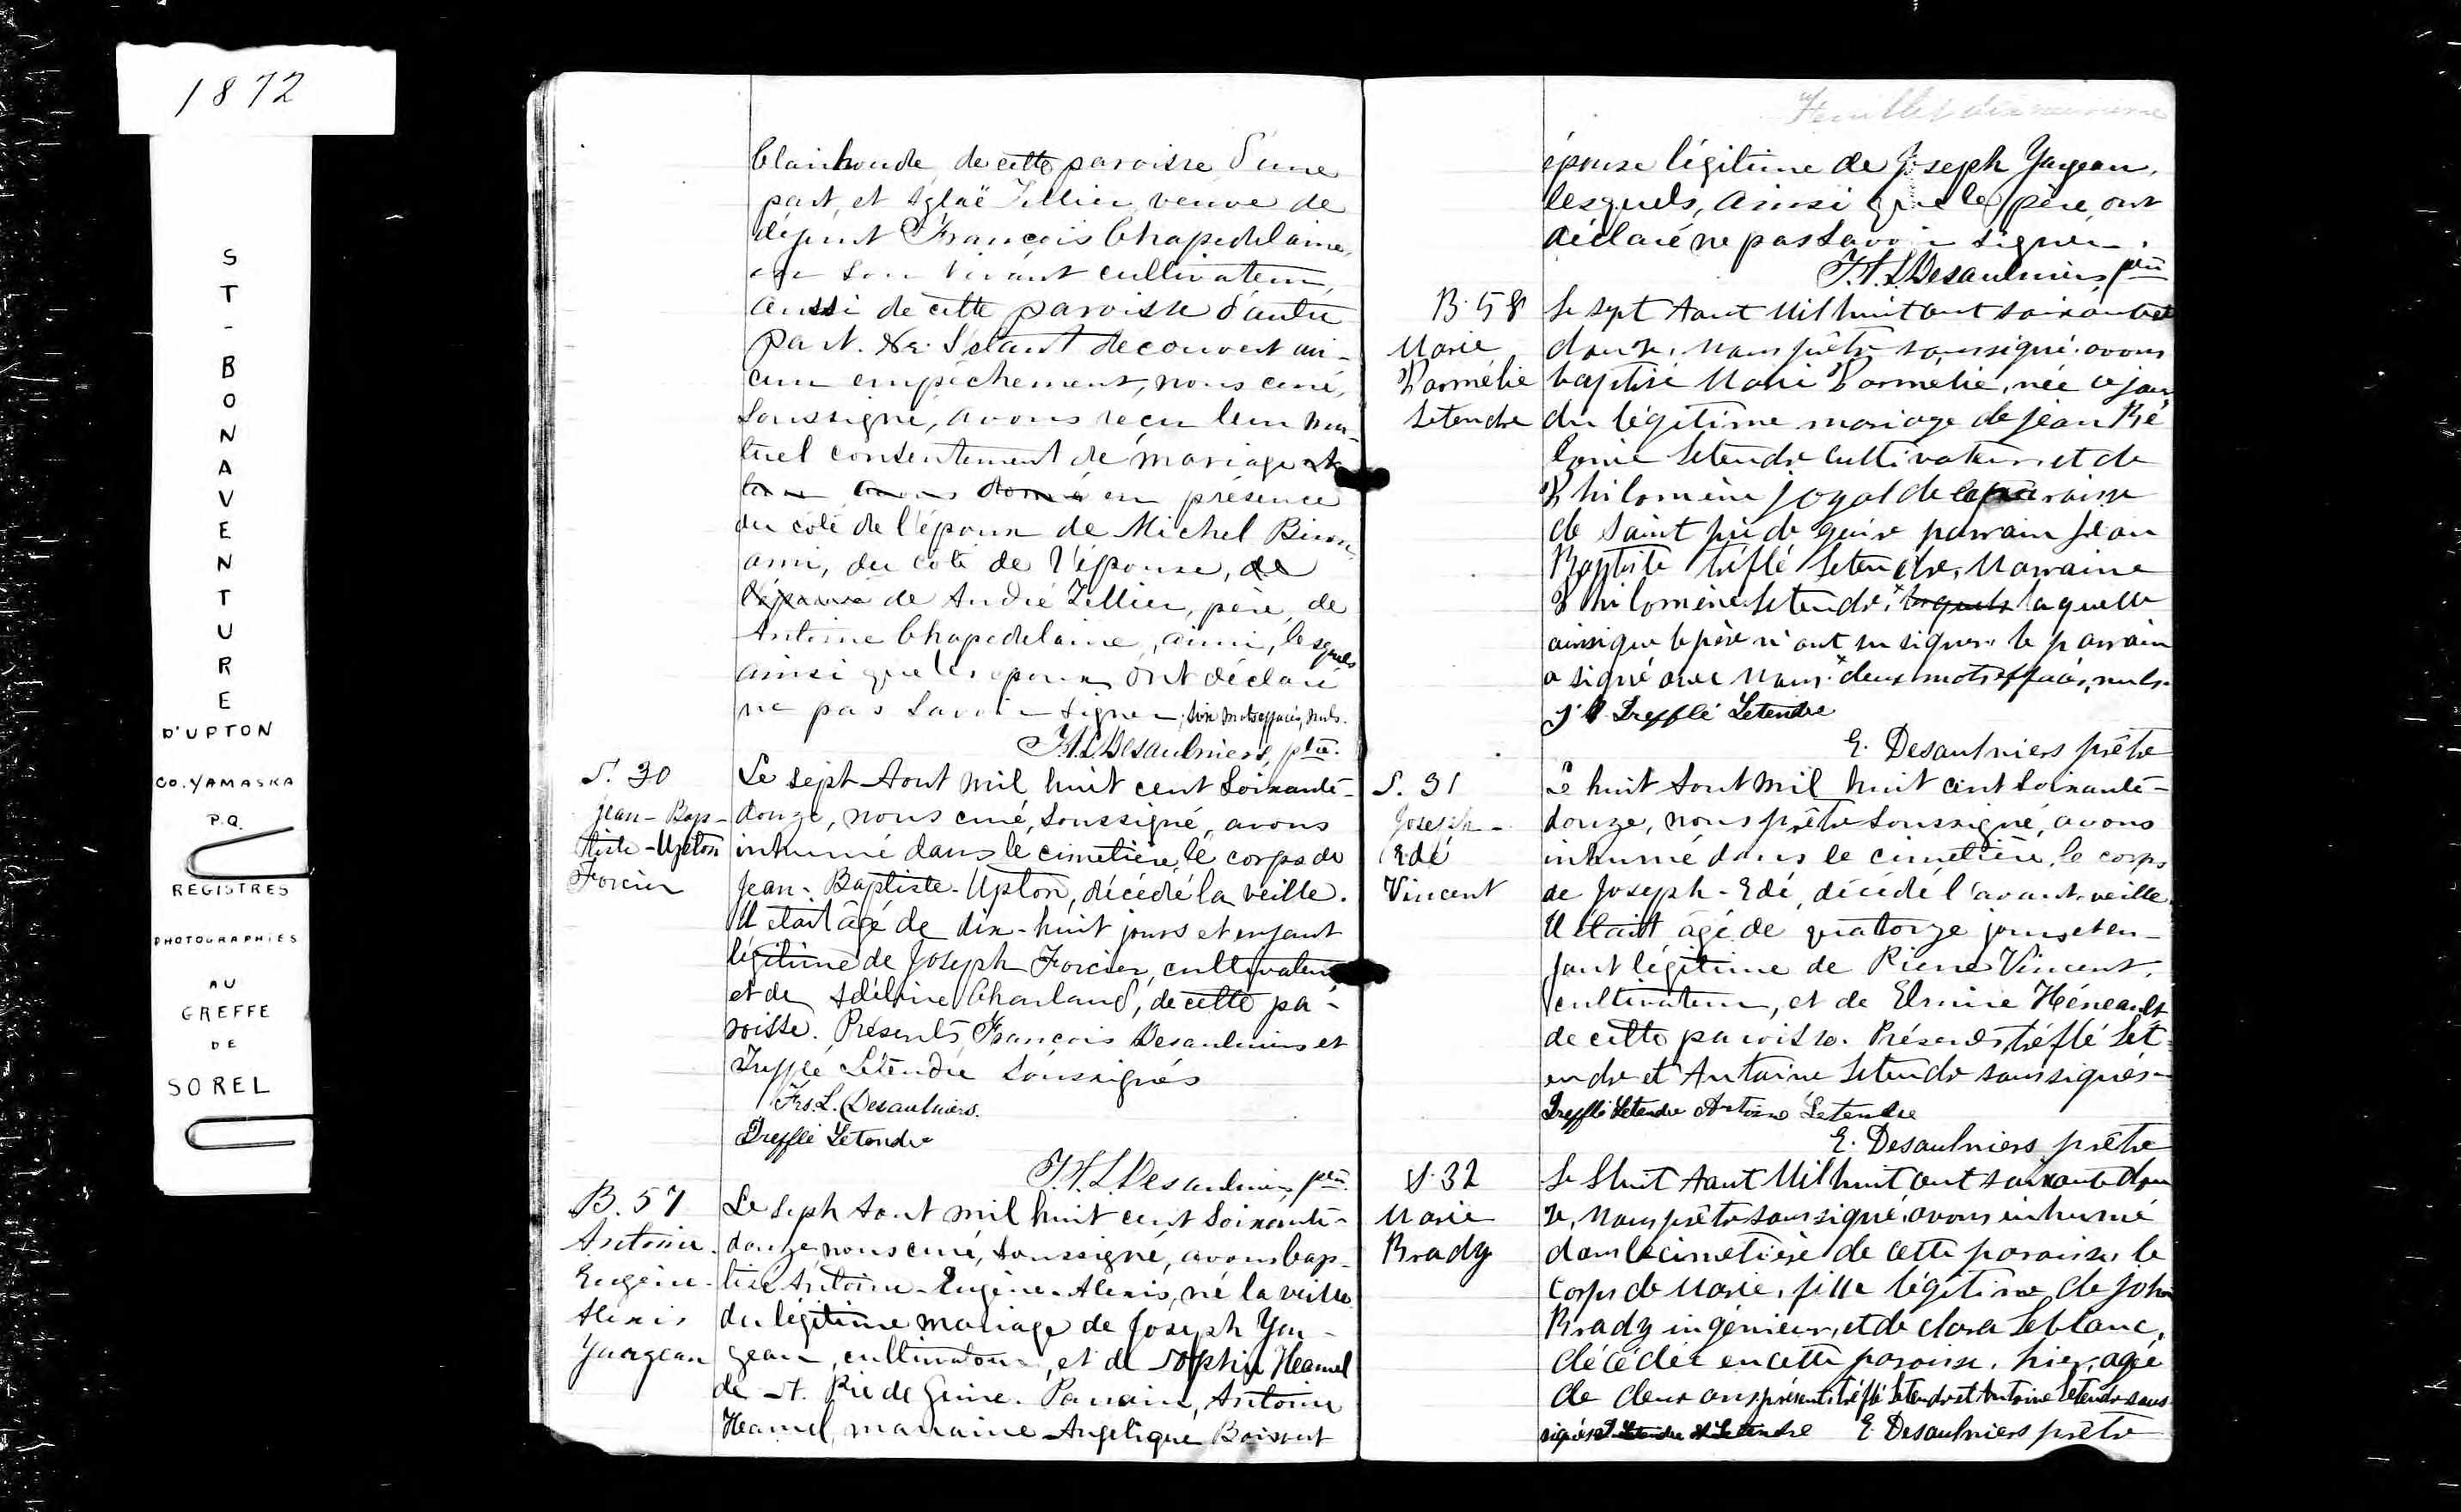 1872
ST-BONAVENTURE
D'UPTON
CO. YAMASKA
P.Q.
REGISTRES
PHOTOGRAPHIES
AU
GREFFE
DE
SOREL
de cette paroisse d'une
part, et Aglaë Tellier, veuve de
défunt François Chapedelaine,
en son vivant cultivateur,
aussi de cette paroisse d'autre
part. Ne s'étant découvert au-
cun empêchement, nous curé,
soussigné, avons reçu leur mu-
tuel consentement de mariage
en présence
du côté de l'époux de Michel
ami, du côté de l'épouse, de
l'épouse de André Tellier, père, de
Antoine Chapedelaine, ami, lesquels
ainsi que les époux ont déclaré
ne pas savoir signer, six mots effacés, nuls.
F.H.L. Desaulniers, ptre.
S. 30
Jean-Bap-
tiste-Upton
Forcier
Le sept Aout mil huit cent soixante-
douze, nous curé, soussigné, avons
inhumé dans le cimetière le corps de
Jean-Baptiste-Upton, décédé la veille.
Il était âgé de dix-huit jours et enfant
légitime de Joseph Forcier, cultivateur
et de Adéline Charland, de cette pa-
roisse. Présents, François Desaulniers et
Trefflé Létendre soussignés
Frs. L. Desaulniers.
Trefflé Letendre
F.H.L. Desaulniers, ptre.
B. 57
Antoine-
Eugène-
Alexis
Yargeau
Le Sept Aout mil huit cent soixante-
douze, nous curé, soussigné, avons bap-
tisé Antoine-Eugène-Alexis, né la veille
du légitime mariage de Joseph Yar-
geau, cultivateur, et de Sophie Heamel
de St. Pie de Guire. Parrain, Antoine
Heamel, marraine Angélique Boisvert
Feuillet dixneuvième
épouse légitime de Joseph Yargeau,
lesquels, ainsi que le père, ont
déclaré ne pas savoir signer.
F.H.L. Desaulniers, ptre
B. 58
Marie
Parmélie
Letendre
Le sept Aout Mil huit cent soixante et
douze, nous prêtre soussigné avons
baptisé Marie Parmélie, née ce jour
du légitime mariage de Jean Bé
lonie Letendre cultivateur et de
Philomène Joyal de la paroisse
de Saint pie de guire parrain Jean
Baptiste tréflé Letendre, Marraine
Philomène Letendre, lesquels laquelle
ainsi que le père n'ont su signer. le parrain
a signé avec nous. deux mots effacés, nuls.
J B Trefflé Letendre
E. Desaulniers prêtre
S. 31
Joseph-
Edé
Vincent
Le huit Aout mil huit cent soixante-
douze, nous prêtre soussigné, avons
inhumé dans le cimetière, le corps
de Joseph-Edé, décédé l'avant-veille.
Il était âgé de quatorze jours et en-
fant légitime de Pierre Vincent,
cultivateur, et de Elmire Héneault
de cette paroisse. Présents, tréflé Let
endre et Antoine Letendre soussignés
Trefflé Letendre Antoine Letendre
E. Desaulniers prêtre
S. 32
Marie
Brady
Le Huit Aout Mil huit cent soixante dou
ze, nous prêtre soussigné, avons inhumé
dans le cimetière de cette paroisse le
corps de Marie, fille légitime de john
Brady ingénieur, et de clara Leblanc,
décédée en cette paroisse, hier, agée
de deux ans présents tréflé Letendre et Antoine Letendre sous
signés T Letendre A Letendre E. Desaulniers prêtre